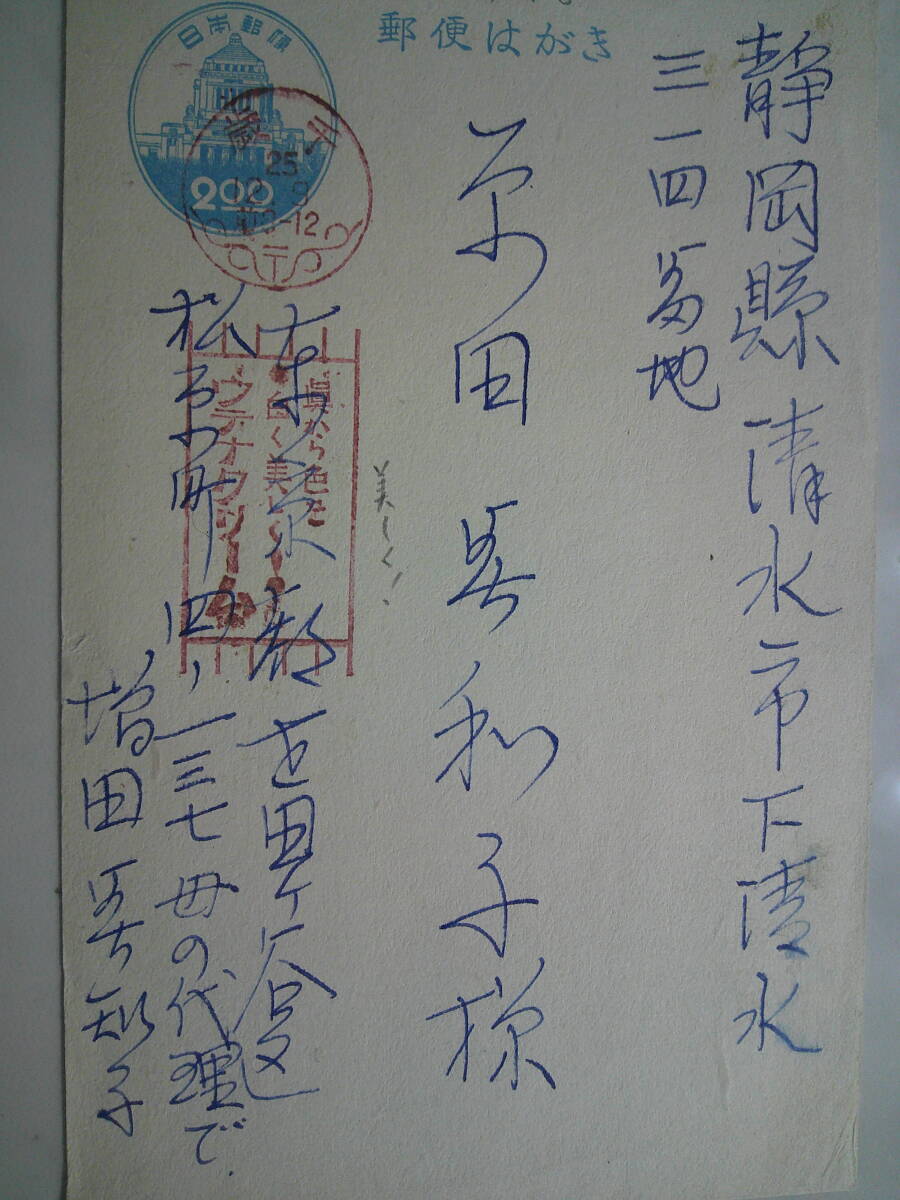 郵便はがき
日本郵便
2.00
歳末
25
12 9
静岡縣清水市下清水
三一四番地
田美和子様
美しく!
真から色を
白く美しく
ウテナクリーム
東京都世田ヶ谷区
松原町四ノ一三七母の代理で
増田美知子